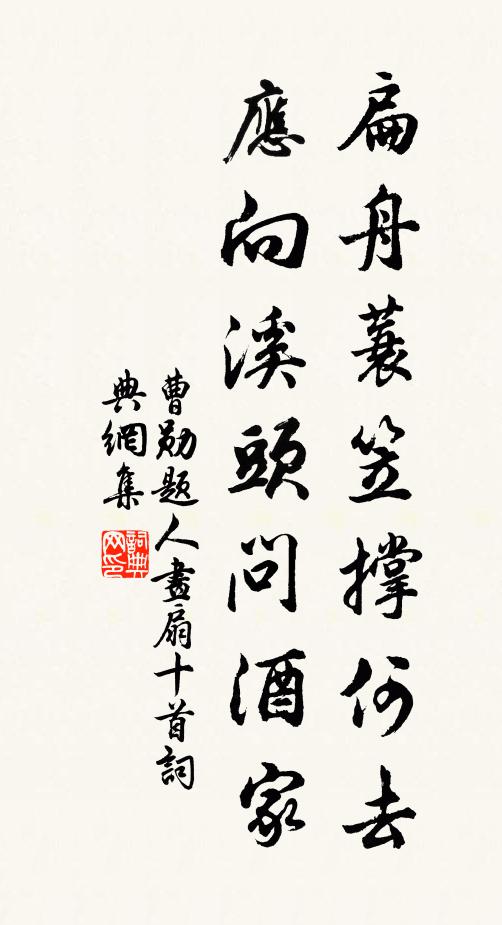 扁舟蓑笠撐何去
應向溪頭問酒家
曹勛題人畫扇十首詞
典網集
詞典
网印